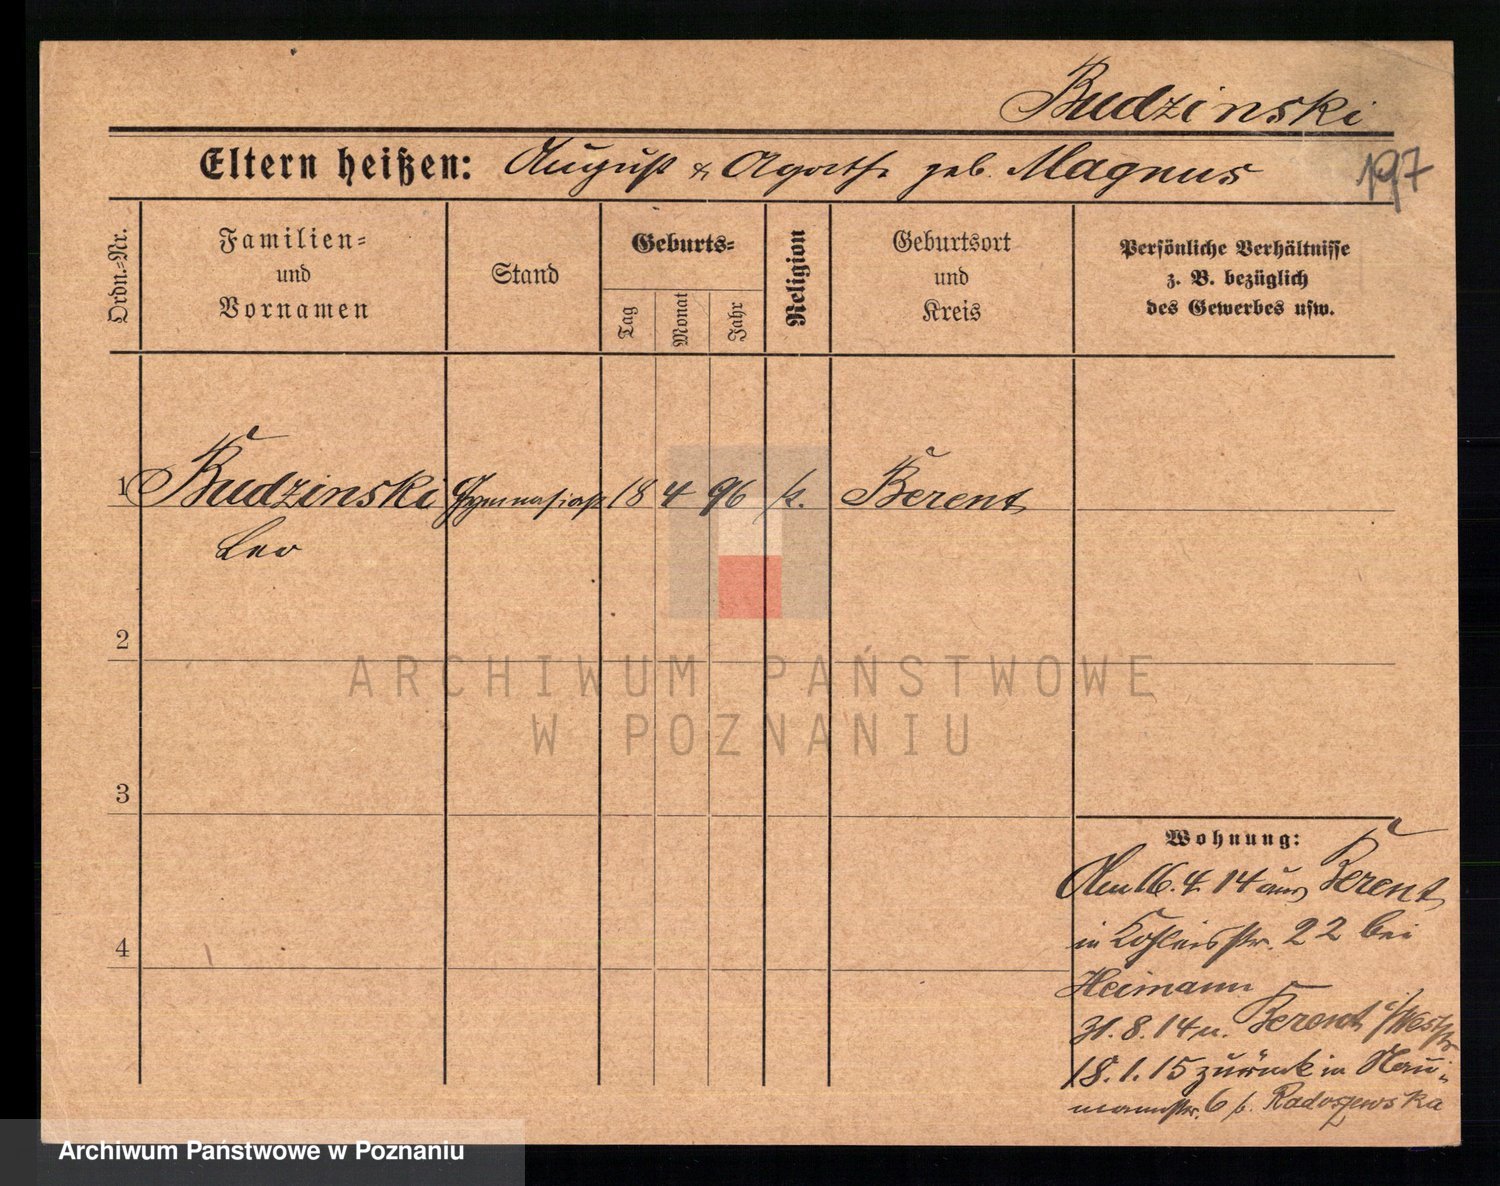 Budzinski
Eltern heißen: August & Agathe geb. Magnus
197
Ordn.=Nr.
Familien=
und
Vornamen
Stand
Geburts=
Tag
Monat
Jahr
Religion
Geburtsort
und
Kreis
Persönliche Verhältnisse
z. B. bezüglich
des Gewerbes usw.
1 Budzinski Gymnasiast 18 4 96 k. Berent
Leo
2
3
4
ARCHIWUM PAŃSTWOWE
W POZNANIU
Wohnung:
Am 16.4.14 aus Berent
in Kohleisstr. 22 bei
Heimann
31.8.14 n. Berent i/Westpr
18.1.15 zurück in Nau-
mannstr. 6 b. Radoszewska
Archiwum Państwowe w Poznaniu